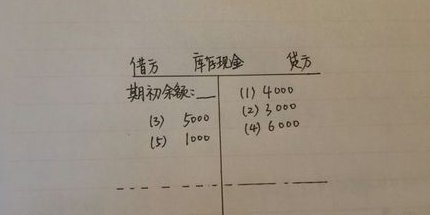 借方 库存现金 贷方
期初余额:__ (1) 4000
(2) 3000
(3) 5000
(4) 6000
(5) 1000